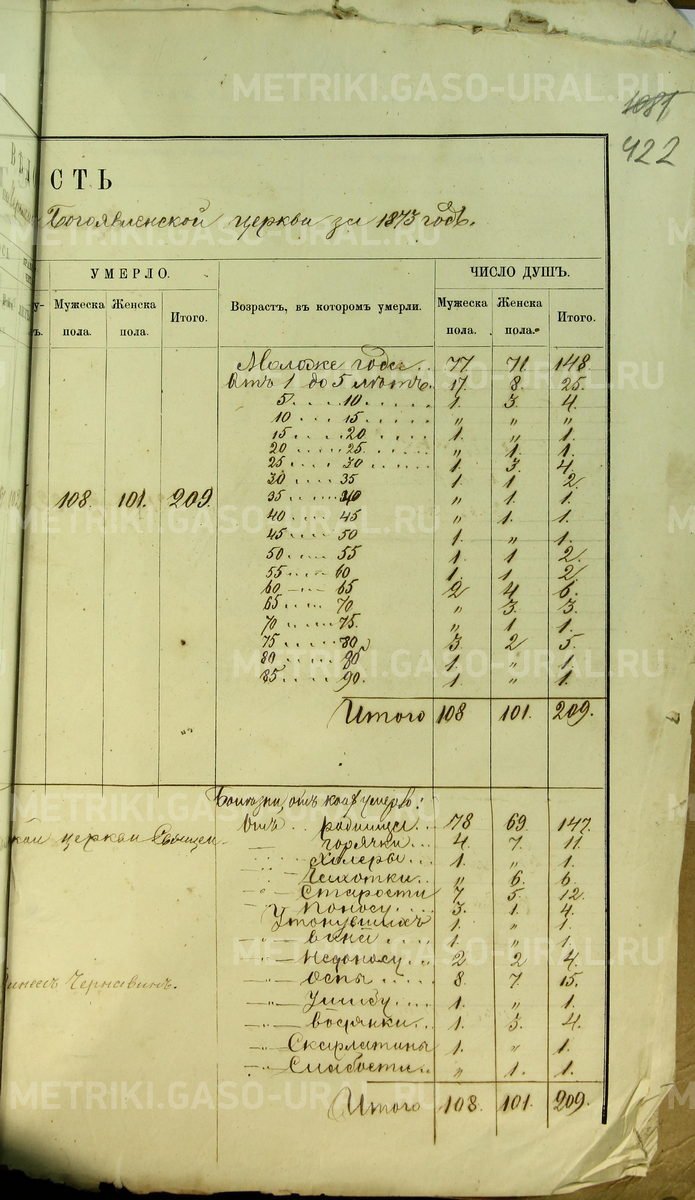 1081
422
СТЬ
Богоявленской церкви за 1873 годъ.
УМЕРЛО. ЧИСЛО ДУШЪ.
Мужеска пола. Женска пола. Итого. Возрастъ, въ которомъ умерли. Мужеска пола. Женска пола. Итого.
Моложе года.. 77 71. 148.
Отъ 1 до 5 лѣтъ. 17. 8. 25.
5. . . . 10. . . . . 1. 3. 4.
10 . . . . 15. . . . . „ „ „
15 . . . . 20. . . . . 1. „ 1.
20 . . . . 25. . . . . „ 1. 1.
25 . . . . 30 . . . . . 1. 3. 4.
30 . . . . 35 1. 1 2.
108. 101. 209. 35 . . . . 40 „ 1. 1.
40 . . . 45 „ 1. 1.
45 . . . . 50 1. „ 1.
50 . . . . 55 1. 1 2.
55 . . . . 60 1. 1 2.
60 — 65 2 4 6.
65 . . . . 70 „ 3. 3.
70 . . . . 75. „ 1 1.
75 . . . . 80 3. 2 5.
80 . . . . 85 1. „ 1.
85 . . . . 90. 1. „ 1.
Итого 108 101. 209.
Болѣзни, отъ коихъ умерло:
Отъ . . родимца . . 78 69. 147.
церкви Священ. — горячки . . 4. 7. 11.
Холеры . . . 1. „ 1.
Чихотки . . „ 6. 6.
Старости 7 5. 12.
Поносу . . . 3. 1. 4.
Утонувшихъ 1. „ 1.
1. „ 1.
Недоносу . . . 2 2 4.
Чернавинъ. Оспы . . . . 8. 7. 15.
Ушибу . . . . 1. „ 1.
Водянки . . 1. 3. 4.
Скарлатины 1. „ 1.
Слабости . . „ 1. 1.
Итого 108. 101. 209.
METRIKI.GASO-URAL.RU